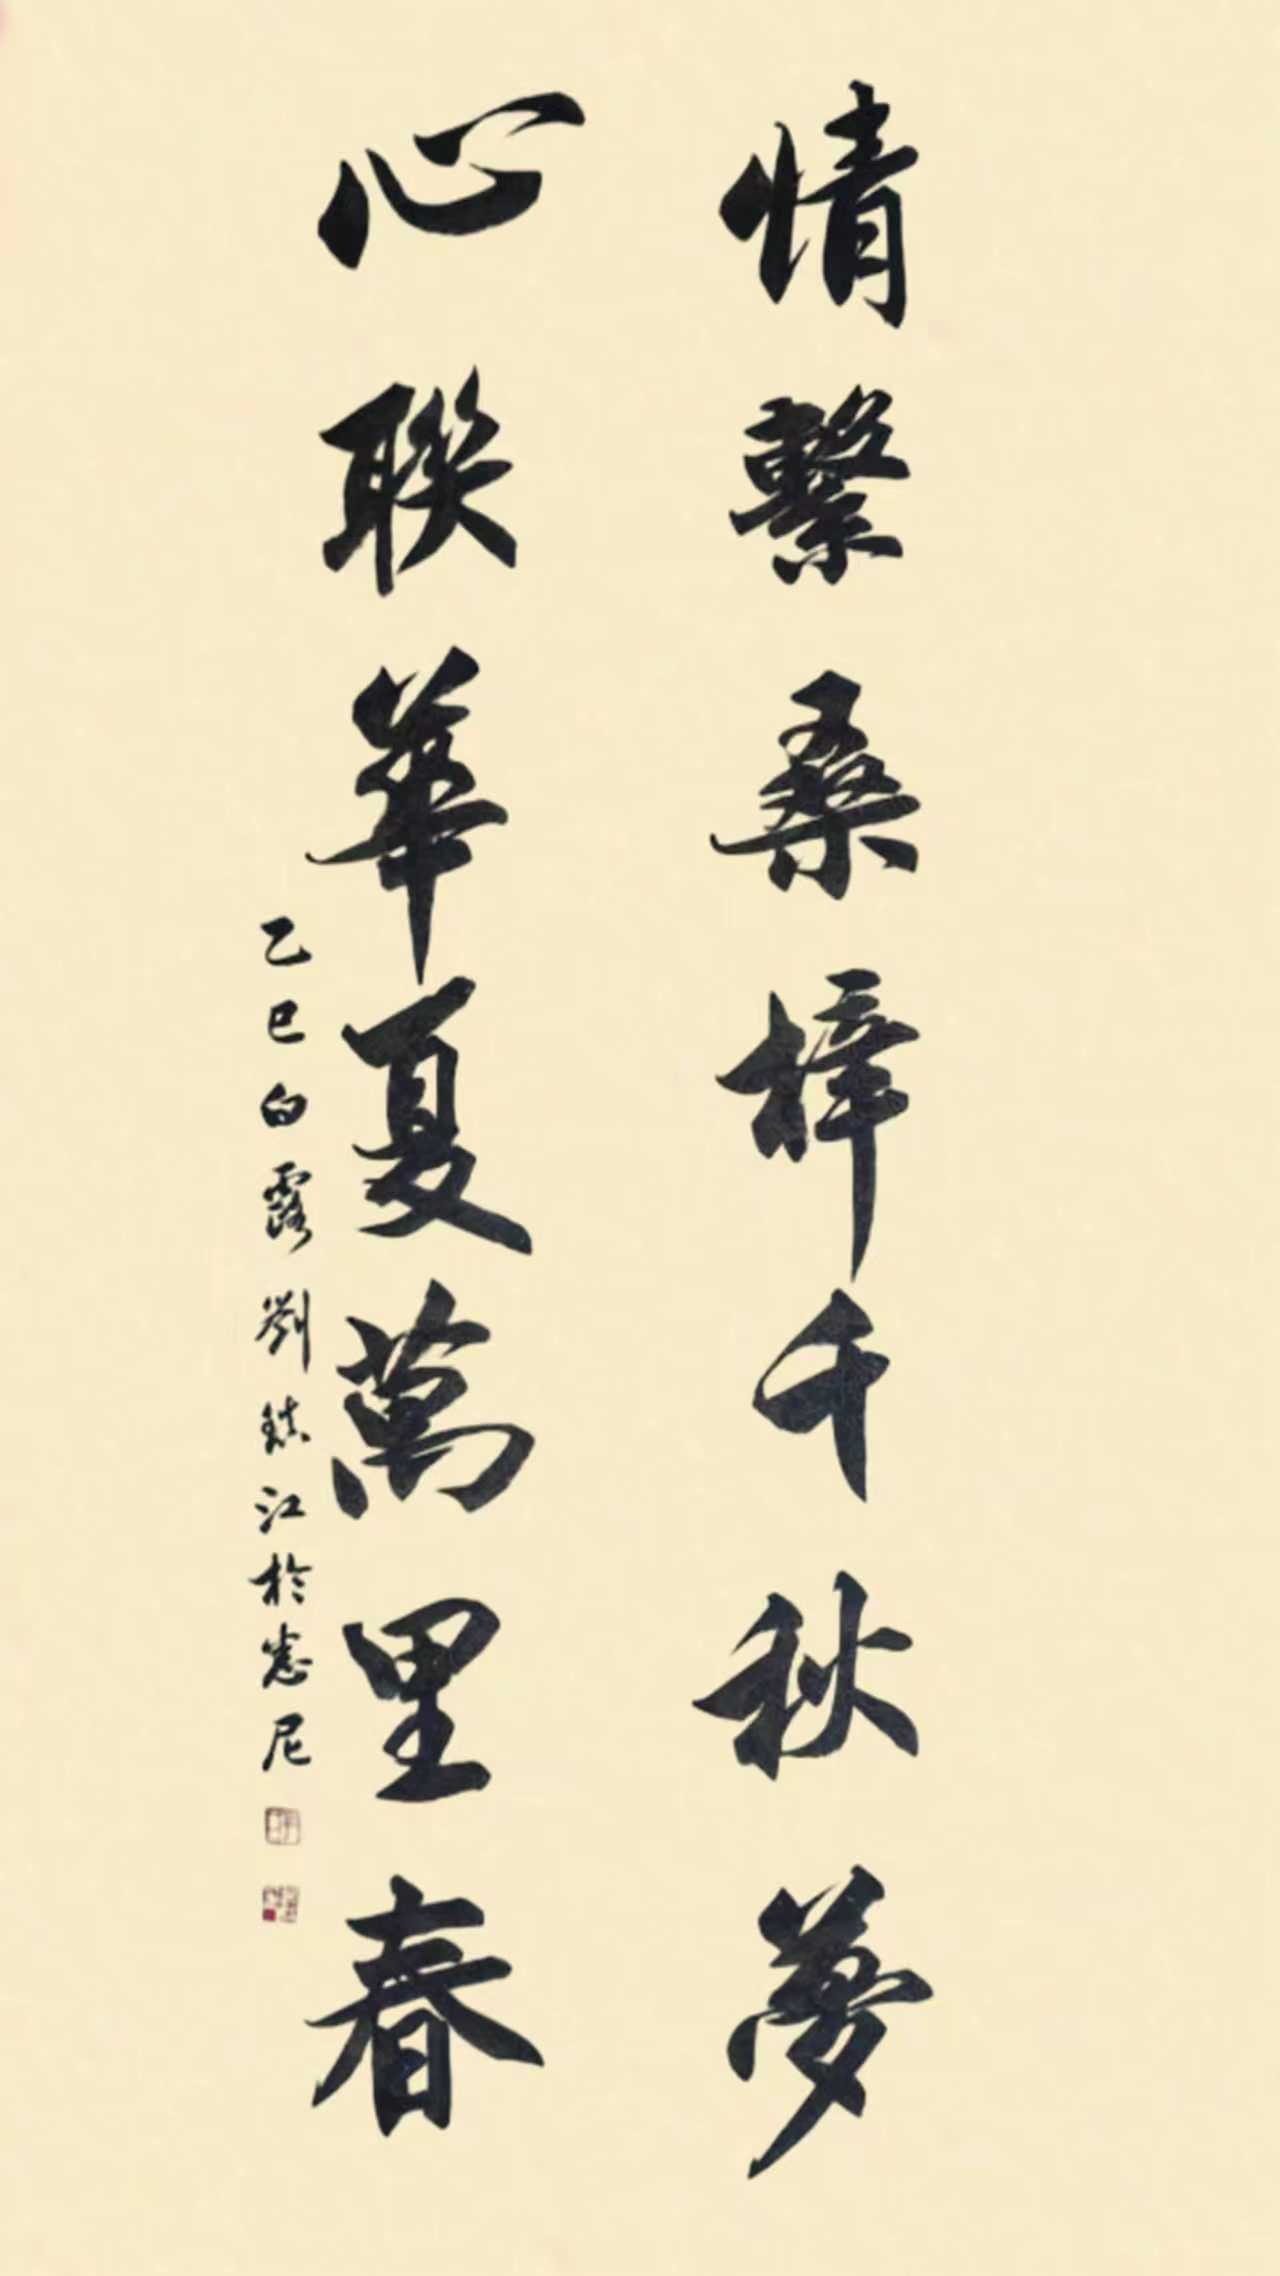 情繫桑梓千秋夢
心聯華夏萬里春
乙巳白露劉鎮江於悉尼